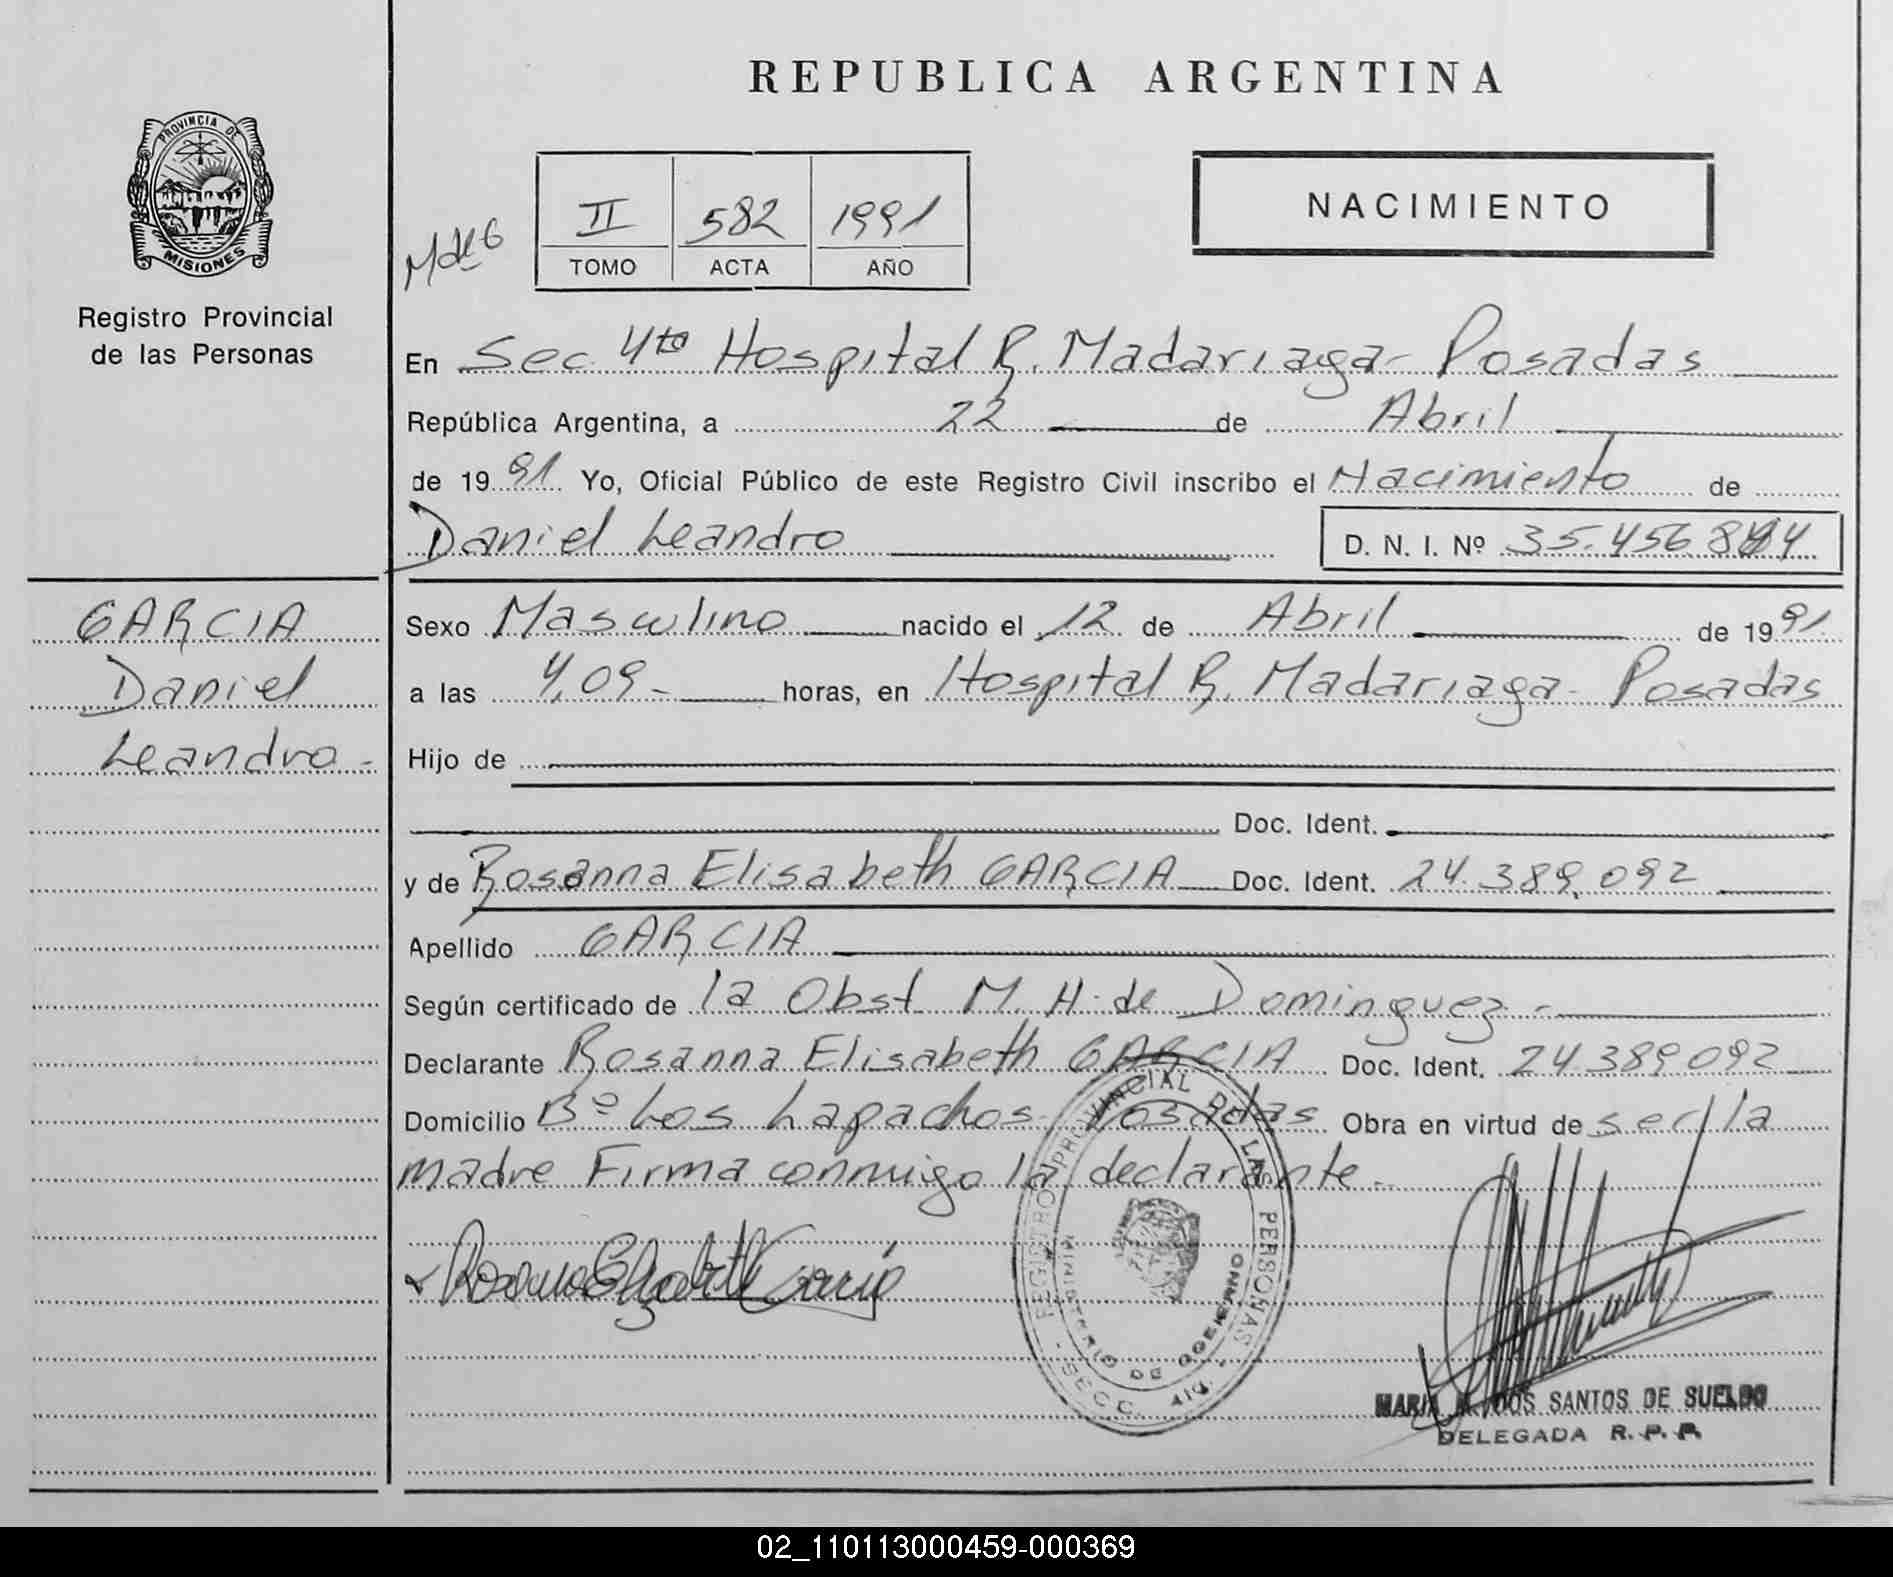 REPUBLICA ARGENTINA
PROVINCIA DE
MISIONES
Registro Provincial
de las Personas
II 582 1991
TOMO ACTA AÑO
NACIMIENTO
En Sec. 4ta Hospital R. Madariaga - Posadas
República Argentina, a 22 de Abril
de 1991 Yo, Oficial Público de este Registro Civil inscribo el Nacimiento de
Daniel Leandro D. N. I. Nº 35.456.844
GARCIA
Daniel
Leandro -
Sexo Masculino nacido el 12 de Abril de 1991
a las 4,09 - horas, en Hospital R. Madariaga - Posadas
Hijo de
Doc. Ident.
y de Rosanna Elisabeth GARCIA Doc. Ident. 24.389.092
Apellido GARCIA
Según certificado de la Obst M. H. de Dominguez -
Declarante Rosanna Elisabeth GARCIA Doc. Ident. 24.389.092
Domicilio Bº Los Lapachos - Posadas Obra en virtud de ser la
madre Firma conmigo la declarante -
REGISTRO PROVINCIAL DE LAS PERSONAS
MINISTERIO DE GOBIERNO
Rosanna Elizabeth Garcia
MARIA DOS SANTOS DE SUELDO
DELEGADA R. P. P.
02_110113000459-000369